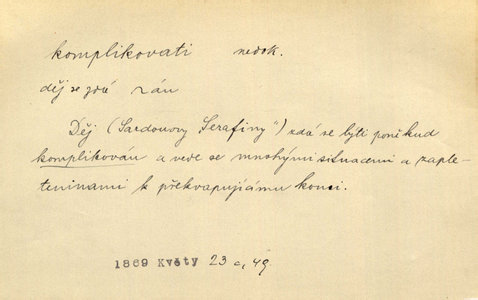 komplikovati nedok.
děj se zdá -án
Děj (Sardouovy Serafiny") zdá se býti poněkud
komplikován a vede se mnohými situacemi a zaple-
teninami k překvapujícímu konci.
1869 Květy 23 c, 49.